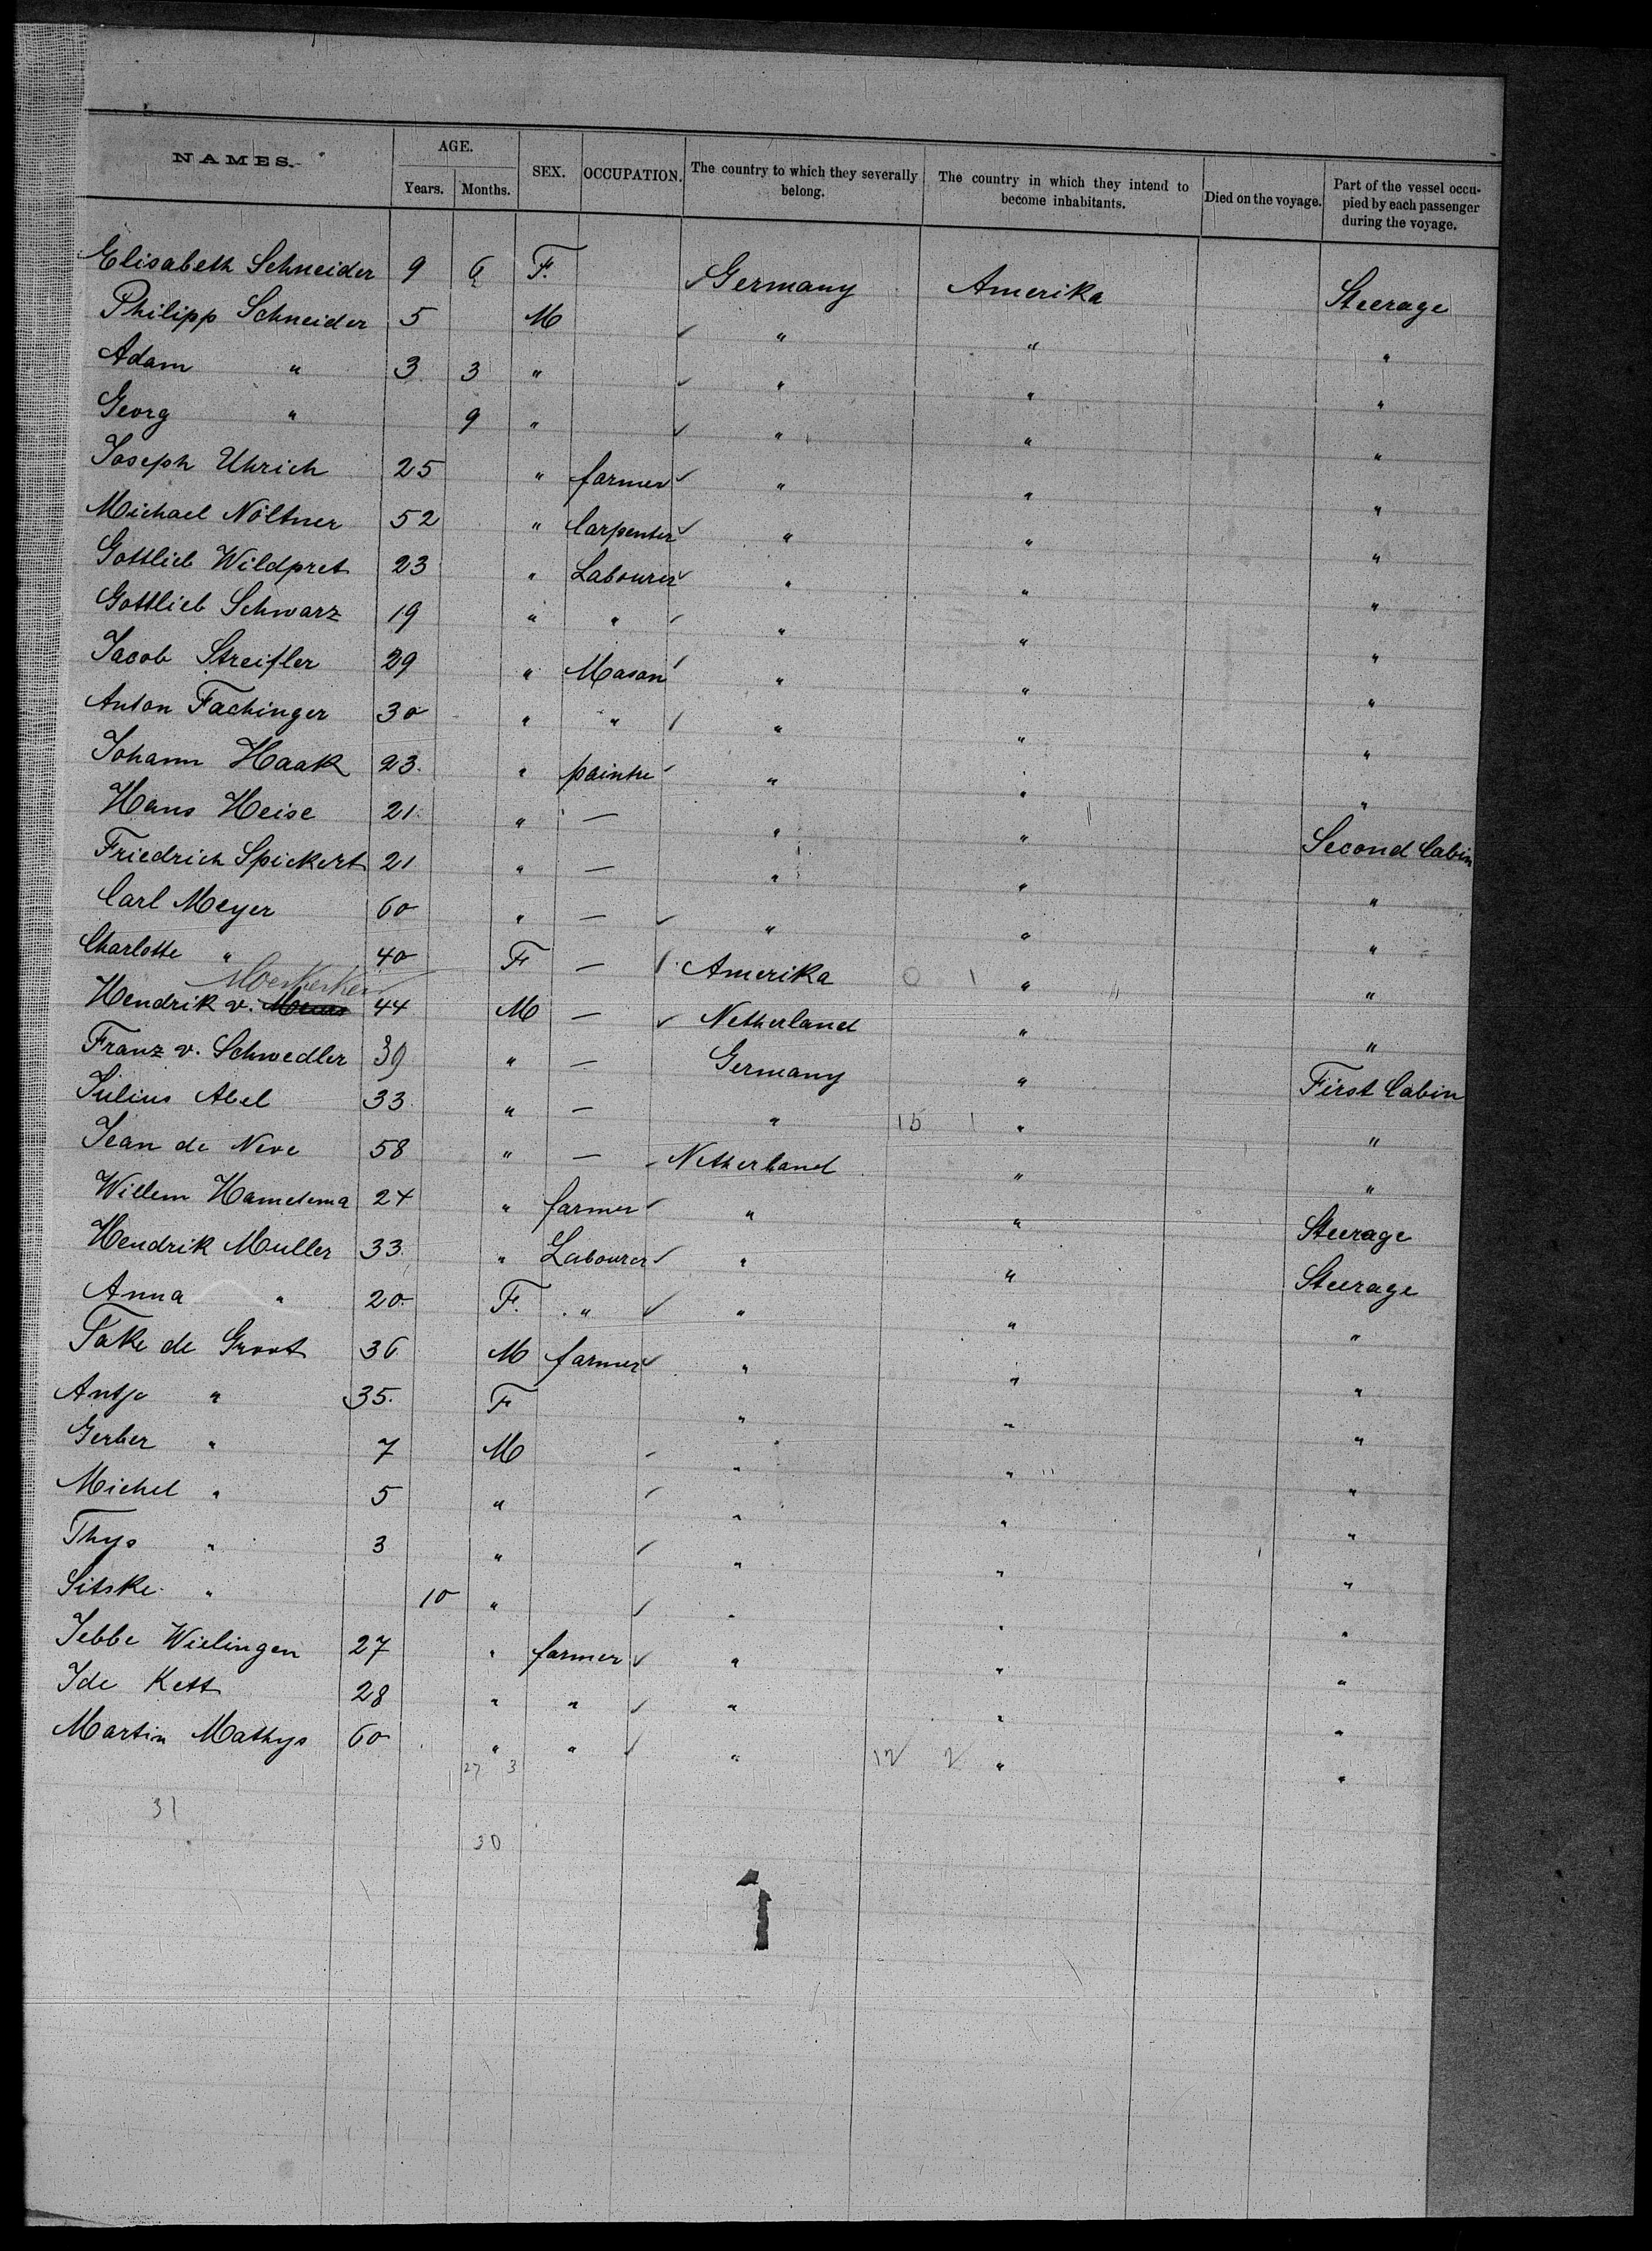 NAMES. AGE. SEX. OCCUPATION. The country to which they severally belong. The country in which they intend to become inhabitants. Died on the voyage. Part of the vessel occupied by each passenger during the voyage.
Years. Months.
Elisabeth Schneider 9 6 F. ✓ Germany Amerika Steerage
Philipp Schneider 5 M ✓ " " "
Adam " 3 3 " ✓ " " "
Georg " 9 " ✓ " " "
Joseph Uhrich 25 " farmer ✓ " " "
Michael Nöltner 52 " Carpenter ✓ " " "
Gottlieb Wildpret 23 " Labourer ✓ " " "
Gottlieb Schwarz 19 " " ✓ " " "
Jacob Streifler 29 " Mason ✓ " " "
Anton Fachinger 30 " " ✓ " " "
Johann Haak 23. " paintre ✓ " " "
Hans Heise 21. " — " " Second Cabin
Friedrich Spickert 21 " — " " "
Carl Meyer 60 " — ✓ " " "
Charlotte " 40 F — ✓ Amerika 0 1 " "
Hendrik v. Moerkerken 44 M — ✓ Netherland " "
Franz v. Schwedler 39 " — Germany " First Cabin
Julius Abel 33. " — " 15 1 " "
Jean de Neve 58 " — Netherland " "
Willem Hametema 24 " farmer ✓ " " Steerage
Hendrik Muller 33. " Labourer ✓ " " Steerage
Anna " 20. F. " ✓ " " "
Take de Groot 36 M farmer ✓ " " "
Antje " 35. F " " "
Gerber " 7 M ✓ " " "
Michel " 5 " ✓ " " "
Thys " 3 " ✓ " " "
Sitske " 10 " ✓ " " "
Jebbe Wielingen 27 " farmer ✓ " " "
Ide Kett 28 " " ✓ " " "
Martin Mathys 60 " " ✓ " 12 2 " "
27 3
31
30